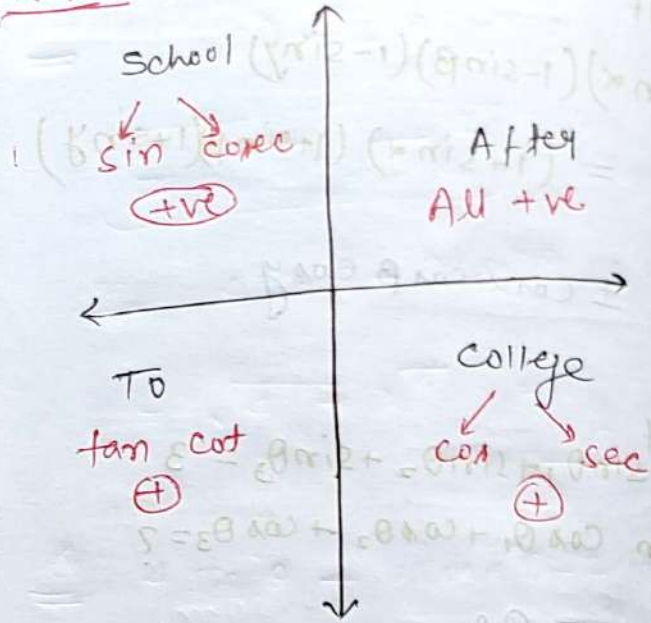 School
sin cosec
+ve
After
All +ve
To
tan cot
+
College
cos sec
+